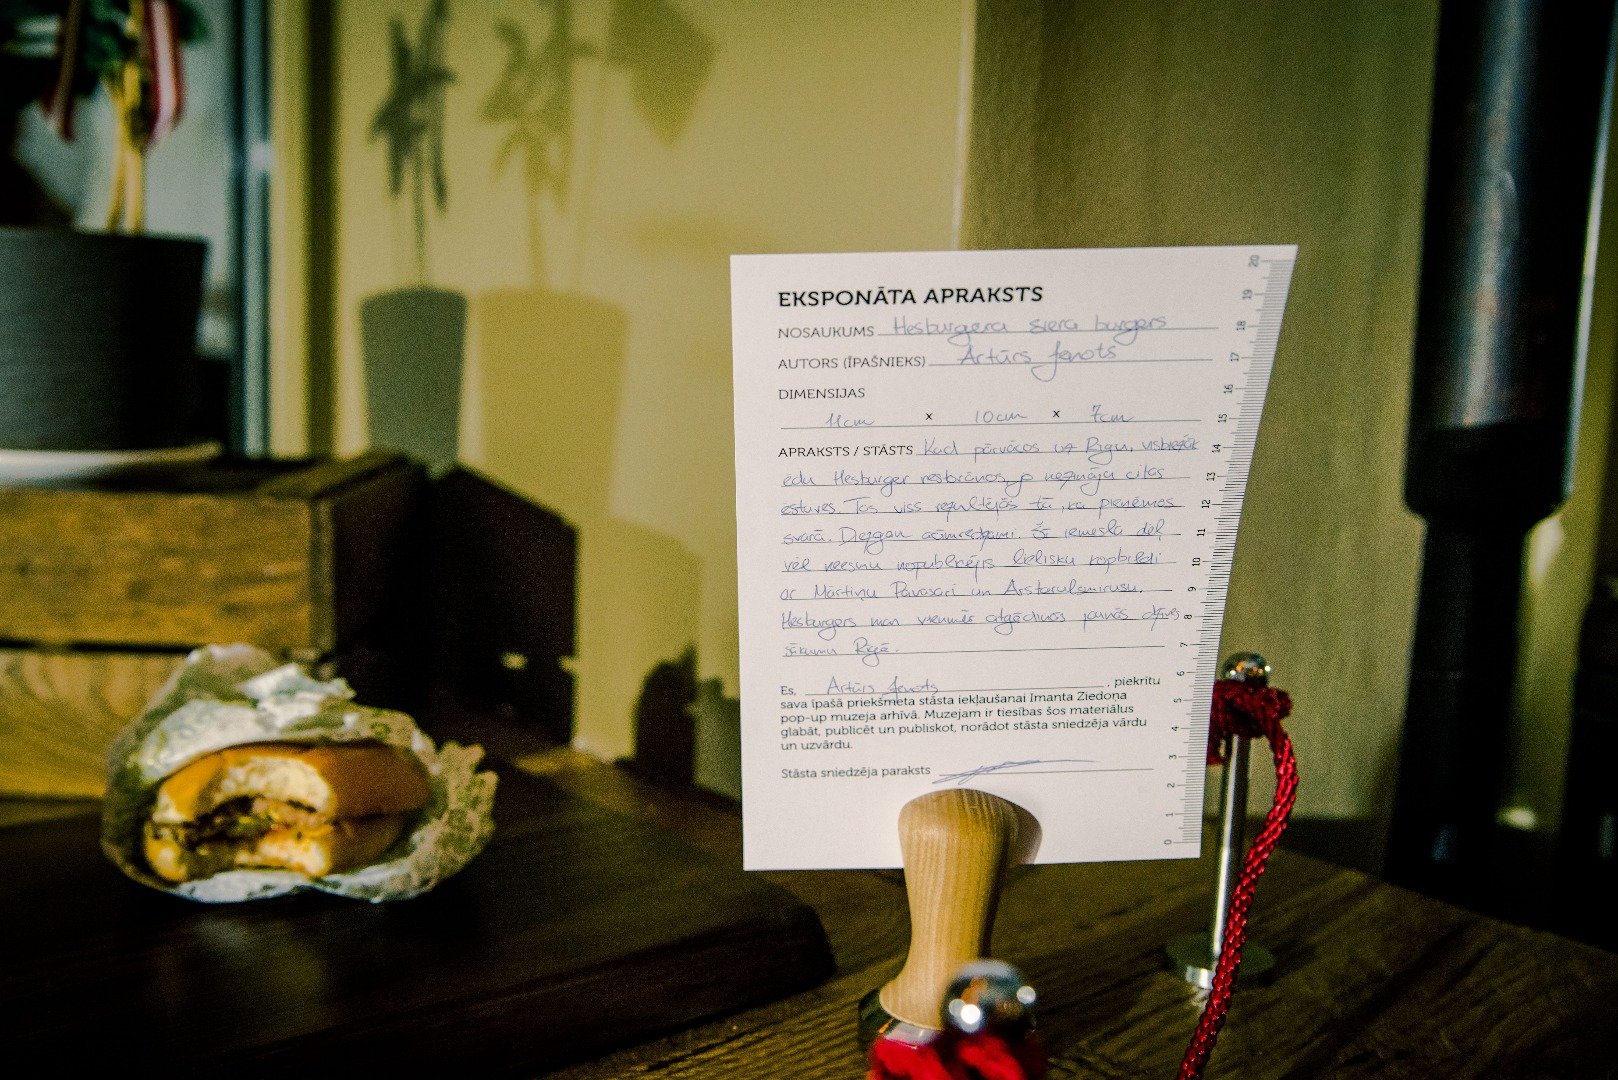 EKSPONĀTA APRAKSTS
NOSAUKUMS Hesburgera siera burgers
AUTORS (ĪPAŠNIEKS) Artūrs
DIMENSIJAS
11cm x 10cm x 7cm
APRAKSTS / STĀSTS Kad pārvācos uz Rīgu, visbiežāk
ēdu Hesburger restorānos, jo nezināju citas
ēstuves. Tas viss rezultējās tā, ka pieņēmos
svarā. Diezgan acīmredzami. Šī iemesla dēļ
vēl neesmu nopublicējis lielisku kopbildi
ar Mārtiņu Pāvasari un
Hesburgers man vienmēr atgādinās jaunās dzīves
sākumu Rīgā.
Es, Artūrs , piekrītu
sava īpašā priekšmeta stāsta iekļaušanai Imanta Ziedoņa
pop-up muzeja arhīvā. Muzejam ir tiesības šos materiālus
glabāt, publicēt un publiskot, norādot stāsta sniedzēja vārdu
un uzvārdu.
Stāsta sniedzēja paraksts
20
19
18
17
16
15
14
13
12
11
10
9
8
7
6
5
4
3
2
1
0